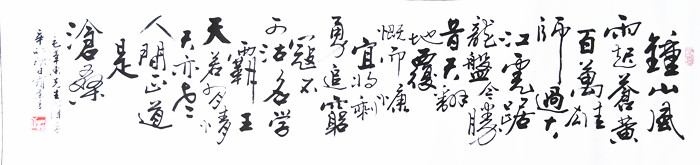 鐘山風
雨起蒼黃
百萬雄
師過大
江虎踞
龍盤今勝
昔天翻
地覆
慨而慷
宜將剩
勇追窮
寇不
可沽名學
霸王
天若有情
天亦老
人間正道
是
滄桑